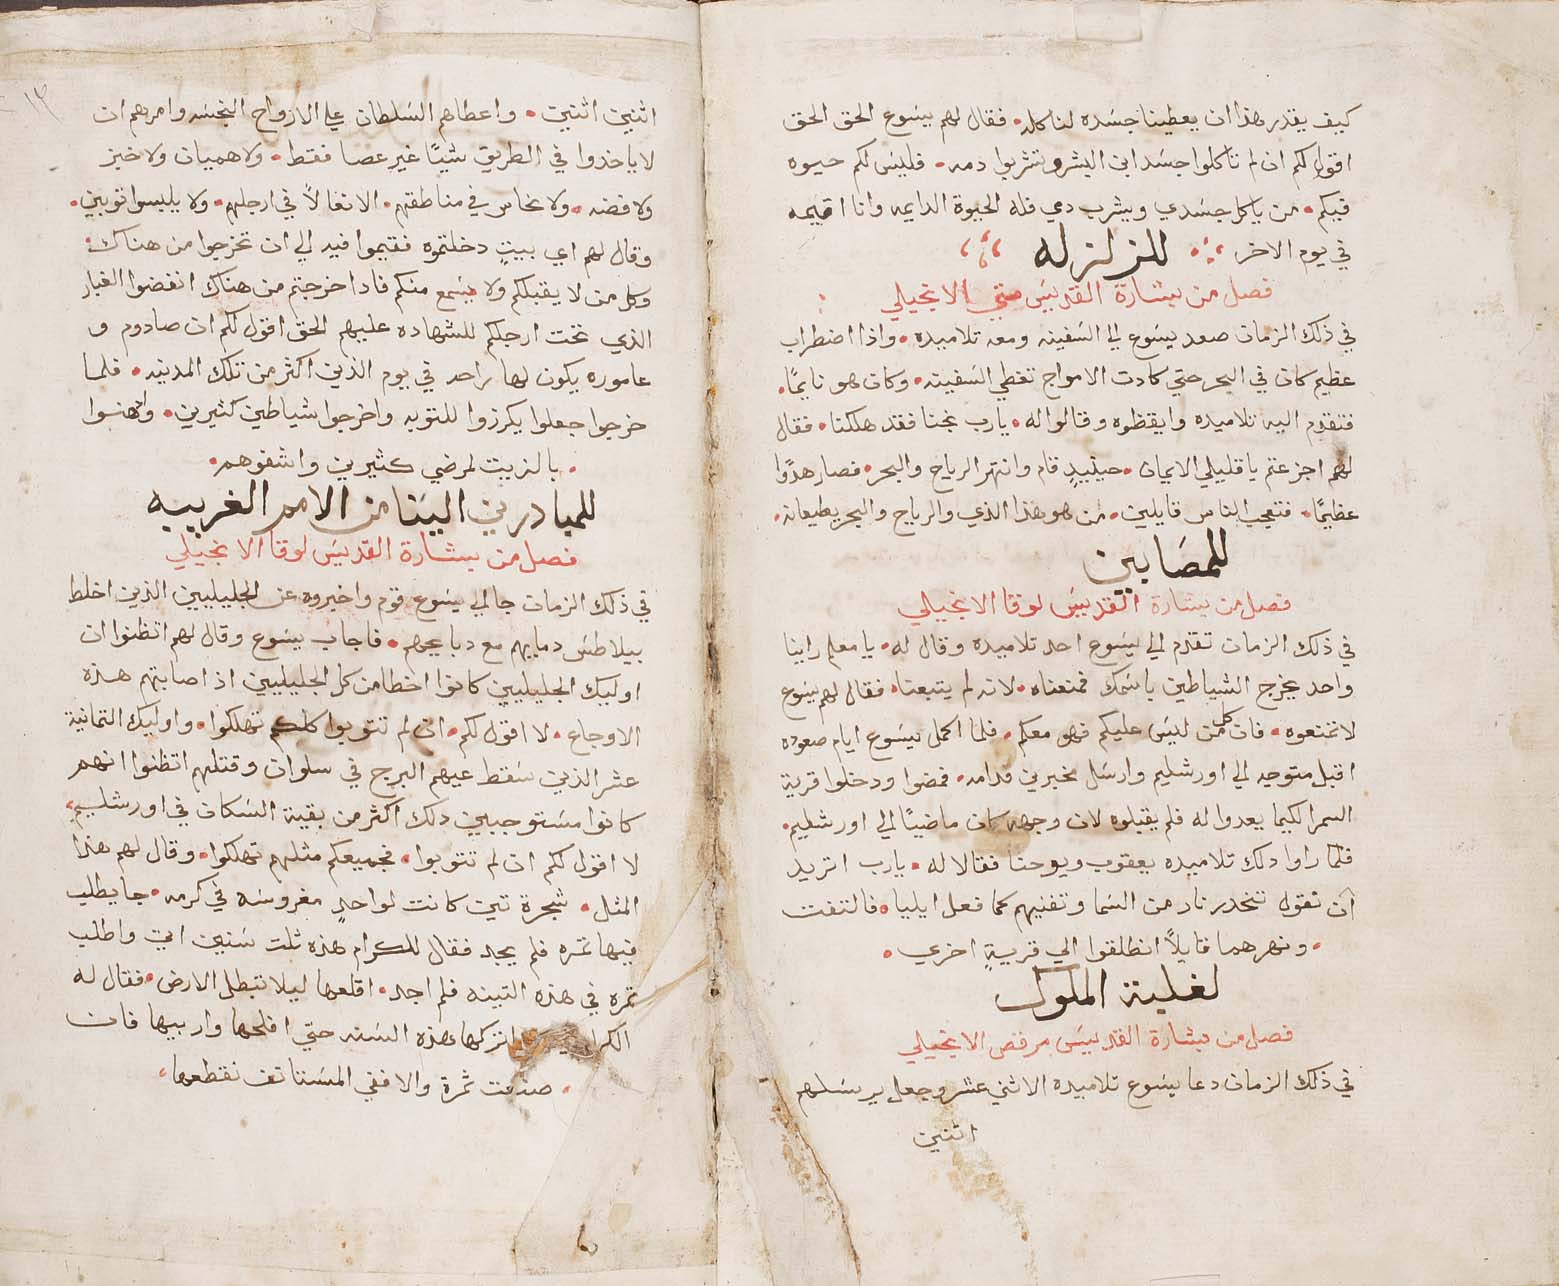 كيف يقدر هذا ان يعطينا جسده لناكله • فقال لهم يسوع الحق الحق
اقول لكم ان لم تاكلوا جسد ابن البشر وتشربوا دمه • فليس لكم حيوه
فيكم • من ياكل جسدي ويشرب دمي فله الحيوة الدايمه وانا اقيمه
في يوم الاخر للزلزله
فصل من بشارة القديس متي الانجيلي
في ذلك الزمان صعد يسوع الي السفينه ومعه تلاميده • واذا اضطراب
عظيم كان في البحر حتي كادت الامواج تغطي السفينه • وكان هو نايمًا •
فتقدم اليه تلاميده وايقظوه وقالوا له • يارب نجنا فقد هلكنا • فقال
لهم اجزعتم يا قليلي الايمان • حينيدٍ قام وانتهر الرياح والبحر • فصار هدوًا
عظيمًا • فتعجب الناس قايلين • من هو هذا الذي والرياح والبحر يطيعانه •
للمصابين
فصل من بشارة القديس لوقا الانجيلي
في ذلك الزمان تقدم الي يسوع احد تلاميده وقال له • يا معلم راينا
واحد يخرج الشياطين باسمك فمنعناه • لانه لم يتبعنا • فقال لهم يسوع
لا تمنعوه • فان كل من ليس عليكم فهو معكم • فلما اكمل يسوع ايام صعوده
اقبل متوجه الي اورشليم وارسل مخبرين قدامه • فمضوا ودخلوا قرية
السمرا لكيما يعدوا له فلم يقبلوه لان وجهه كان ماضيًا الي اورشليم •
فلما راوا دلك تلاميده يعقوب ويوحنا فقالا له • يارب اتريد
ان نقول تنحدر نار من السما وتفنيهم كما فعل ايليا • فالتفت
• ونهرهما قايلاً انطلقوا الي قريةٍ اخري •
لغلبة الملوك
فصل من بشارة القديس مرقص الانجيلي
في ذلك الزمان دعا يسوع تلاميده الاثني عشر وجعل يرسلهم
اثنين
١٣
اثنين اثنين • واعطاهم السلطان علي الارواح النجسه وامرهم ان
لا ياخدوا في الطريق شيًا غير عصا فقط • ولا هميان ولا خبز
ولا فضه • ولا نحاس في مناطقهم • الا نعالاً في ارجلهم • ولا يلبسوا توبين •
وقال لهم اي بيتٍ دخلتموه فقيموا فيه الي ان تخرجوا من هناك •
وكل من لا يقبلكم ولا يسمع منكم فادا خرجتم من هناك انفضوا الغبار
الذي تحت ارجلكم للشهاده عليهم الحق اقول لكم ان صادوم و
عاموره يكون لها راحه في يوم الدين اكثر من تلك المدينه • فلما
خرجوا جعلوا يكرزوا للتوبه واخرجوا شياطين كثيرين • وادهنوا
• بالزيت لمرضي كثيرين واشفوهم •
للمبادرين الينا من الامم الغريبه
فصل من بشارة القديس لوقا الانجيلي
في ذلك الزمان جا الي يسوع قوم واخبروه عن الجليليين الذين اخلط
بيلاطس دمايهم مع دبايحهم • فاجاب يسوع وقال لهم اتظنوا ان
اوليك الجليليين كانوا اخطا من كل الجليليين اذ اصابتهم هذه
الاوجاع • لا اقول لكم • ان لم تتوبوا كلكم تهلكوا • واوليك التمانية
عشر الذين سقط عيهم البرج في سلوان وقتلهم اتظنوا انهم
كانوا مستوجبين دلك اكثر من بقية السكان في اورشليم
لا اقول لكم ان لم تتوبوا • فجميعكم مثلهم تهلكوا • وقال لهم هذا
المثل • شجرة تين كانت لواحدٍ مغروسه في كرمه • جا يطلب
فيها ثمره فلم يجد فقال للكرام هذه ثلت سنين اتي واطلب
ثمره في هذه التينه فلم اجد • اقلعها ليلا تبطل الارض • فقال له
الكرام اتركها هذه السنه حتي افلحها واربيها فان
• صنعت ثمرة والا ففي المستاتف نقطعها